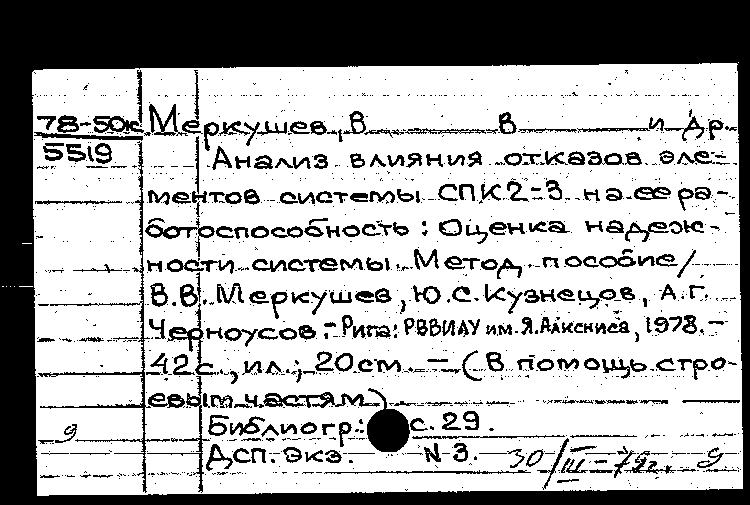 78-50к Меркушев, В В и др.
5519 Анализ влияния отказов эле-
ментов системы СПК2-3 на ее ра-
ботоспособность: Оценка надеж-
ности системы. Метод. пособие/
В.В. Меркушев, Ю.С. Кузнецов, А.Г.
Черноусов. - Рига: РВВИАУ им. Я. Алксниса, 1978. -
42 с., ил.; 20 см. - (В помощь стро-
евым частям)
9 Библиогр.: с. 29.
Дсп. Экз. N 3. 30/III-79г. 9